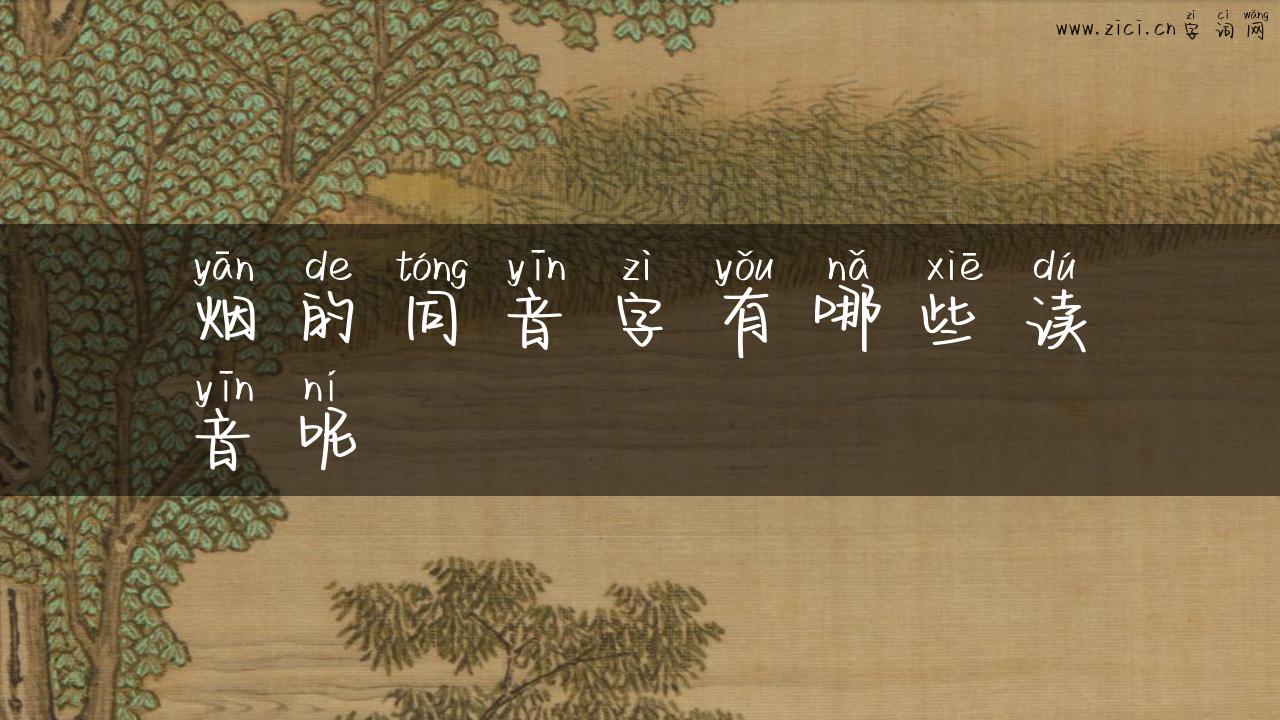 zì cí wǎng
www.zici.cn字词网
yān de tóng yīn zì yǒu nǎ xiē dú
烟的同音字有哪些读
yīn ní
音呢